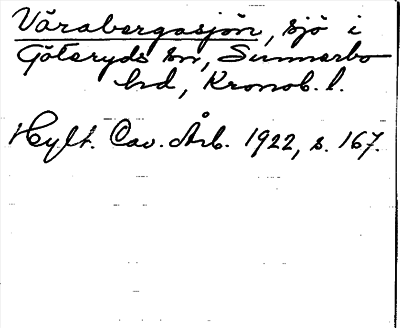 Vårabergasjön, sjö i
Göteryds sn, Sunnerbo
hd, Kronob. l.
Hylt. Cav. Årb. 1922, s. 167.